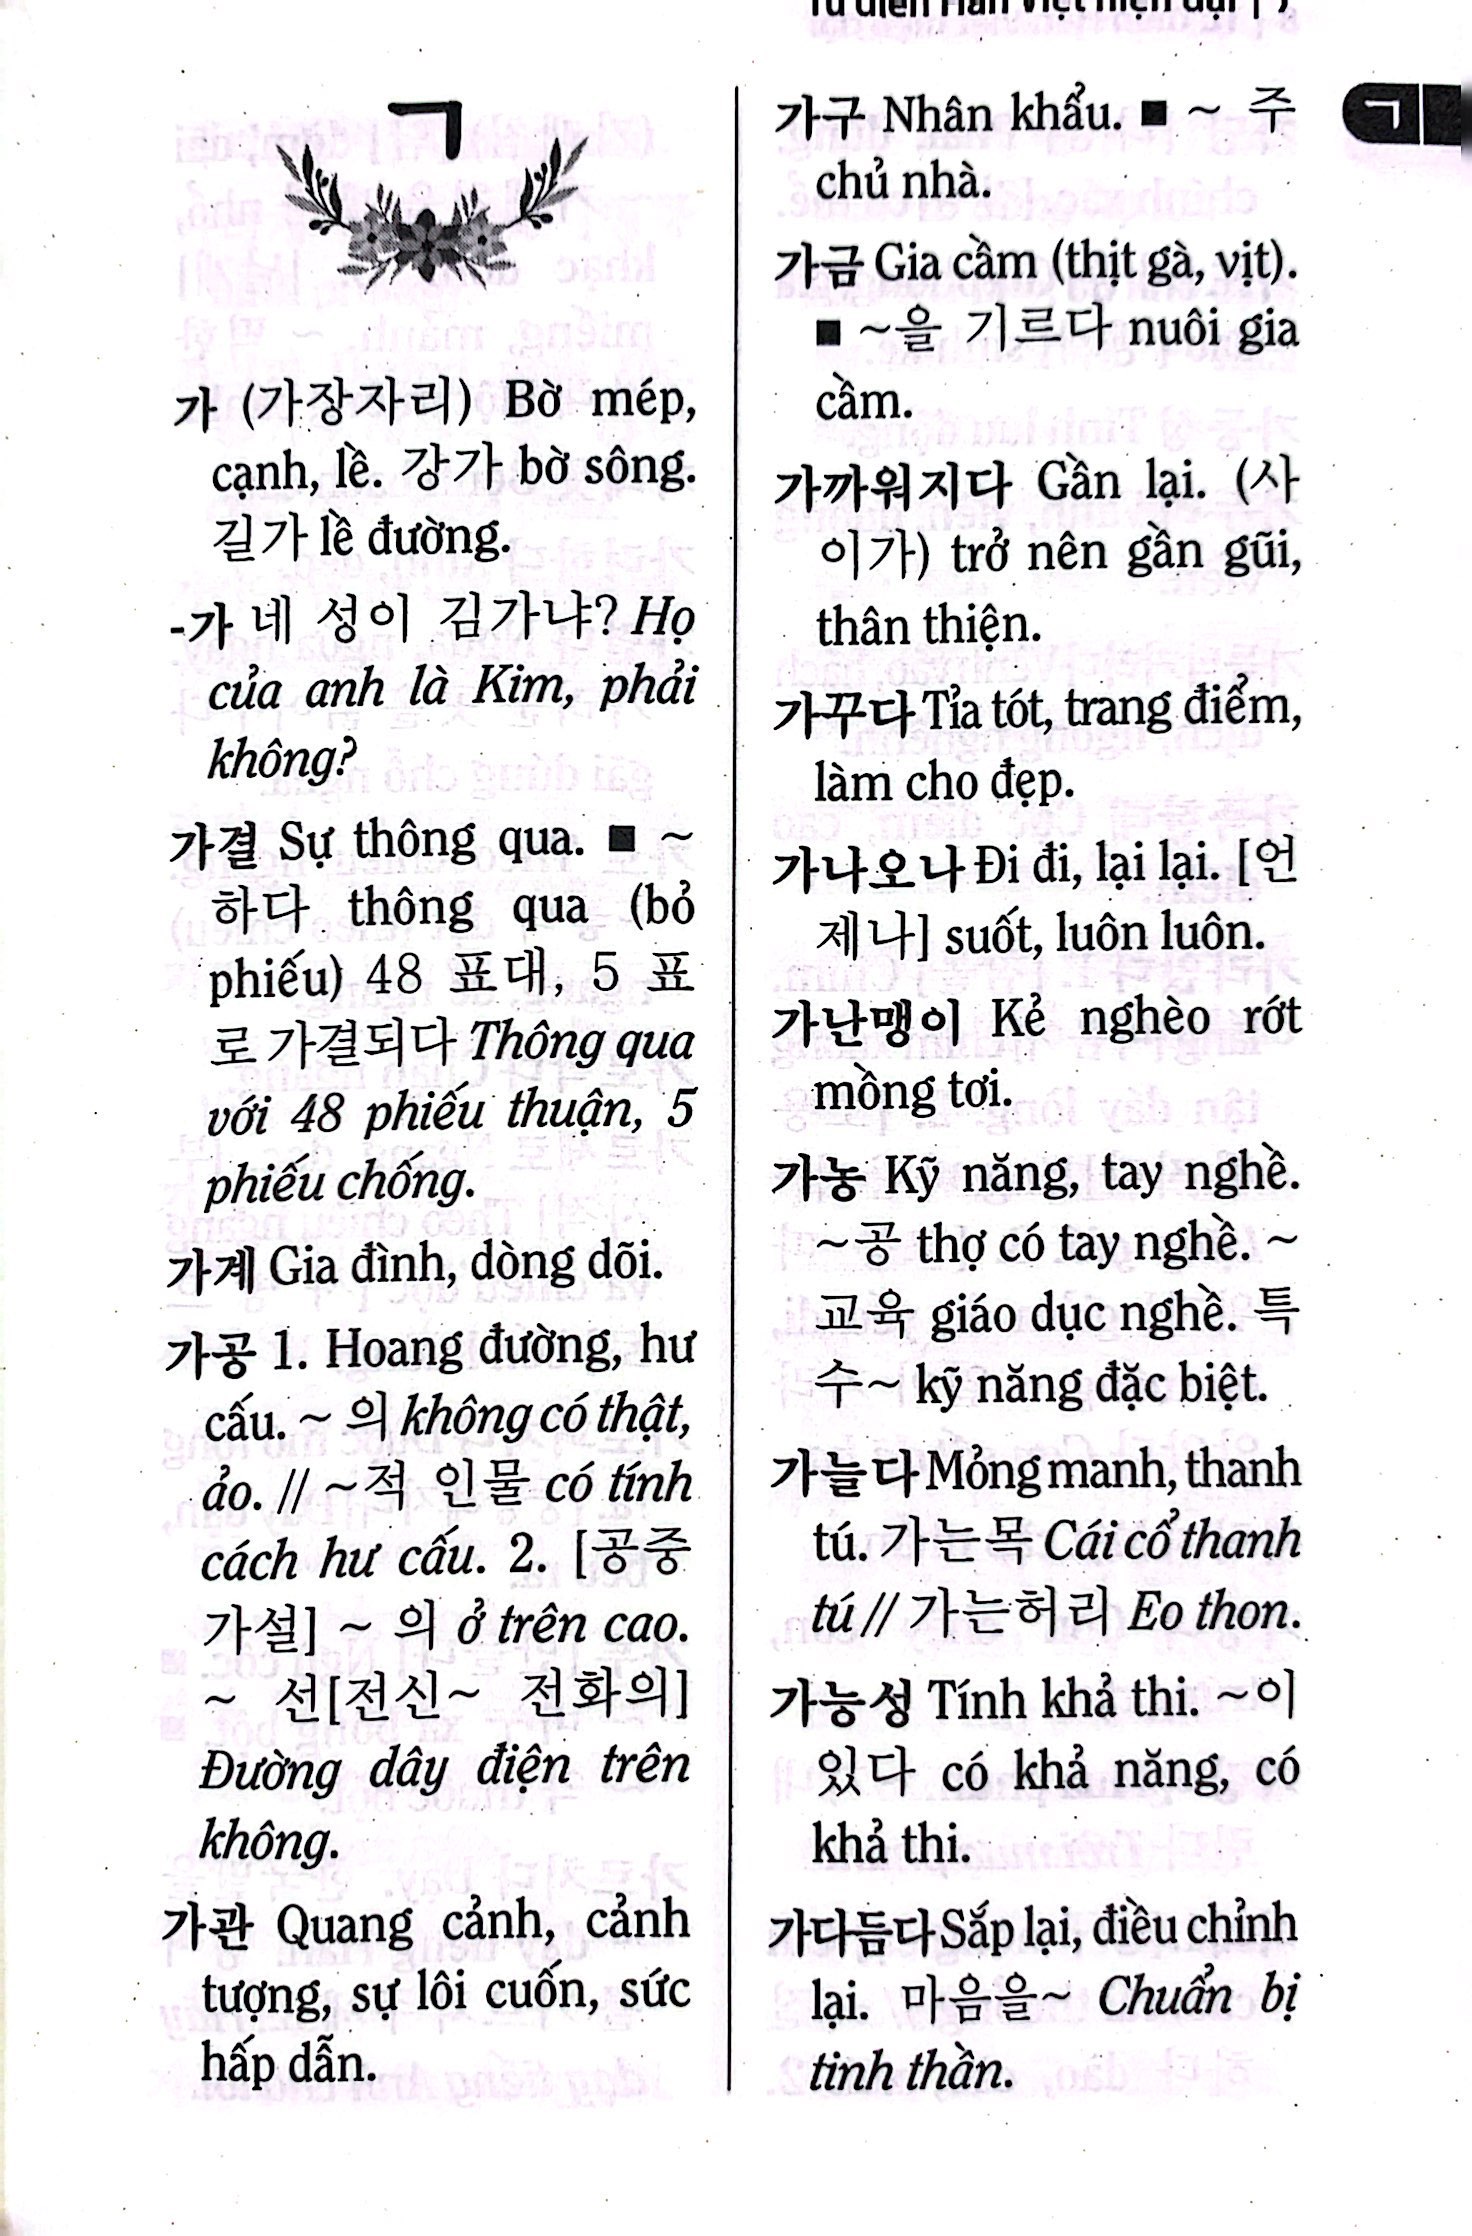 Từ điển Hàn Việt hiện đại | 7
ㄱ
ㄱ
가 (가장자리) Bờ mép,
cạnh, lề. 강가 bờ sông.
길가 lề đường.
-가 네 성이 김가냐? Họ
của anh là Kim, phải
không?
가결 Sự thông qua. ■ ~
하다 thông qua (bỏ
phiếu) 48 표대, 5 표
로 가결되다 Thông qua
với 48 phiếu thuận, 5
phiếu chống.
가계 Gia đình, dòng dõi.
가공 1. Hoang đường, hư
cấu. ~ 의 không có thật,
ảo. // ~적 인물 có tính
cách hư cấu. 2. [공중
가설] ~ 의 ở trên cao.
~ 선[전신~ 전화의]
Đường dây điện trên
không.
가관 Quang cảnh, cảnh
tượng, sự lôi cuốn, sức
hấp dẫn.
가구 Nhân khẩu. ■ ~ 주
chủ nhà.
가금 Gia cầm (thịt gà, vịt).
■ ~을 기르다 nuôi gia
cầm.
가까워지다 Gần lại. (사
이가) trở nên gần gũi,
thân thiện.
가꾸다 Tỉa tót, trang điểm,
làm cho đẹp.
가나오나 Đi đi, lại lại. [언
제나] suốt, luôn luôn.
가난맹이 Kẻ nghèo rớt
mồng tơi.
가농 Kỹ năng, tay nghề.
~공 thợ có tay nghề. ~
교육 giáo dục nghề. 특
수~ kỹ năng đặc biệt.
가늘다 Mỏng manh, thanh
tú. 가는목 Cái cổ thanh
tú // 가는허리 Eo thon.
가능성 Tính khả thi. ~이
있다 có khả năng, có
khả thi.
가다듬다 Sắp lại, điều chỉnh
lại. 마음을~ Chuẩn bị
tinh thần.